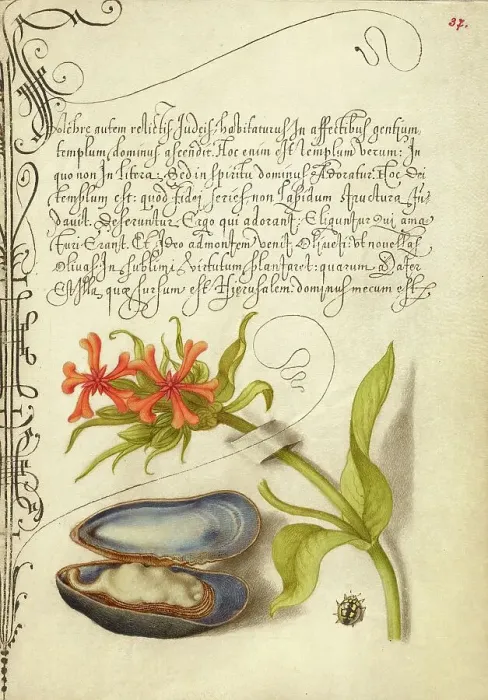 37.
Pulchre autem relictis Judeis habitaturus In affectibus gentium,
templum, dominus ascendit. Hoc enim est templum verum: In
quo non In litera: Sed in spiritu dominus Adoratur. Hoc Dei
templum est: quod fidei series, non Lapidum structura fun
dauit. Deseruntur Ergo qui adorant: Eliguntur Qui ama
turi Erant. Et Ideo ad montem venit Oliueti: vt nouellas
Oliuas In sublimi virtutum plantaret: quarum Mater
Est Illa quæ sursum est Hierusalem. dominus mecum est